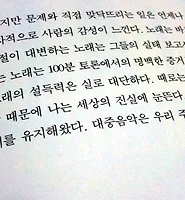 지만 문제와 직접 맞닥뜨리는 일은 언제나
적으로 사람의 감성이 느낀다. 노래는 바
절이 대변하는 노래는 그들의 실태 보고
는 노래는 100분 토론에서의 명백한 증거
래의 설득력은 실로 대단하다. 때로는
때문에 나는 세상의 진실에 눈뜬다.
를 유지해왔다. 대중음악은 우리 주